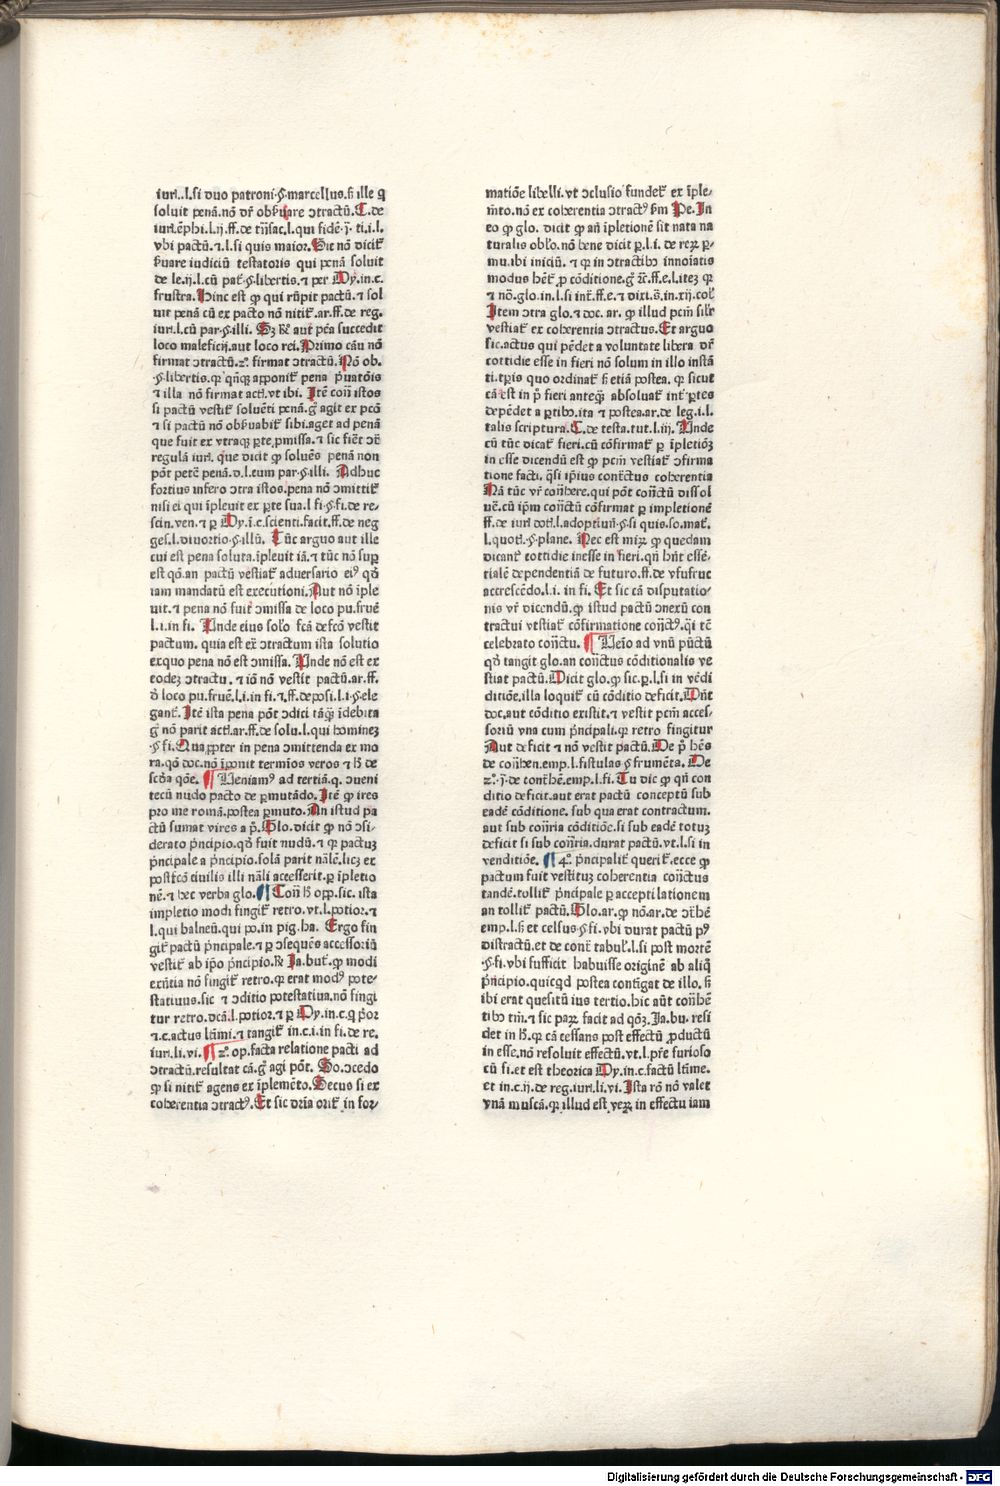 iuri..l.si duo patroni.§.marcellus.sꝫ ille q
soluit penā.nō dr̄ obẜuare ↄtractū.C.de
iuri.ēphi.l.ij.ff.de trāsac.l.qui fidē.ȷ̄. ti.i.l.
vbi pactū.⁊.l.si quis maior.Sic nō dicit᷑
ẜuare iudiciū testatoris qui penā soluit
de le.ij.l.cū pat̄.§.libertis.⁊ per Dy.in.c.
frustra.Hinc est ꝙ qui rūpit pactū.⁊ sol
uit penā cū ex pacto nō nitit᷑.ar.ff.de reg.
iuri.l.cū par.§.illi. Sꝫ aut pēa succedit
loco maleficij.aut loco rei.Primo cāu nō
firmat ↄtractū.2ᵒ. firmat ↄtractū.Nō ob.
.§.libertis.qꝛ qn̄qꝫ apponit᷑ pena
⁊ illa nō firmat actū.vt ibi. Itē coñ istos
si pactū vestit᷑ soluēti penā.gͦ agit ex pcō
⁊ si pactū nō obẜuabit᷑ sibi.aget ad penā
que fuit ex vtraqꝫ ꝑte.ꝓmissa.⁊ sic fiet
regulā iuri. que dicit ꝙ soluēs penā non
pōt petē penā.d.l.cum par.§.illi. Adhuc
fortius infero ↄtra istos.pena nō ↄmittit᷑
nisi ei qui īpleuit ex ꝑte sua.l fi.§.fi.de re-
scin.ven.⁊ ꝑ Dy.ī.c.scienti.facit.ff.de neg
ges.l.diuortio.§.illū. Tūc arguo aut ille
cui est pena soluta.īpleuit iā.⁊ tūc nō suꝑ
est qō.an pactū vestiat᷑ aduersario ei⁹ qꝫ
iam mandatū est executioni.Aut nō īple
uit.⁊ pena nō fuit ↄmissa de loco pu.fruē
l.i.in fi. Unde eius solō fcā defcō vestit
pactum. quia est ex ↄtractum ista solutio
ex quo pena nō est ↄmissa. Unde nō est ex
eodeꝫ ↄtractu. ⁊ iō nō vestit pactū.ar.ff.
d̄ loco pu.fruē.l.i.in fi.⁊.ff.deposi.l.i.§.ele
gant᷑. Itē ista pena pōt ↄdici tāqꝫ īdebita
gͦ nō parit actū.ar.ff.de solu.l.qui homineꝫ
.§.fi.Quaꝓpter in pena ↄmittenda ex mo
ra.qō doc.nō īponit termīos veros ⁊ hꝫ de
scōa qōe.¶ Ueniam⁹ ad tertiā.q. ↄueni
tecū nudo pacto de ꝑmutādo.Itē ꝙ ires
pro me romā.postea ꝑmuto.An istud pa
ctū sumat vires a p̄.Glo.dicit ꝙ nō ↄsi-
derato p̄ncipio.qꝫ fuit nudū.⁊ qꝛ pactuꝫ
p̄ncipale a p̄ncipio.solā parit nālē.licꝫ ex
postfcō ciuilis illi nāli accesserit.ꝑ īpletio
nē.⁊ hec verba glo.¶ Coñ hꝫ opp.sic. ista
impletio modi fingit᷑ retro.vt.l.potior.⁊
l.qui balneū.qui po.in pig.ha. Ergo fin
git᷑ pactū p̄ncipale.⁊ ꝑ ↄsequēs accessoriū
vestit᷑ ab ip̄o p̄ncipio.℞ Ja.but᷑.ꝙ modi
nō fingit᷑ retro.qꝛ erat mod⁹ pote-
statiuus.sic ⁊ ↄditio potestatiua.nō fingi
tur retro.dcā.l.potior.⁊ ꝑ Dy.in.c.q p̄or
⁊.c.actus ltīmi.⁊ tangit᷑ in.c.i.in fi.de re.
iuri.li.vi.¶ 2ᵒ.op.facta relatione pacti ad
ↄtractū.resultat cā.gͦ agi pōt. So.ↄcedo
ꝙ si nitit᷑ agens ex īplemēto.Secus si ex
coherentia ↄtract⁹.Et sic dr̄ia orit᷑ in for-
matiōe libelli.vt ↄclusio fundet᷑ ex īple-
m̄to.nō ex coherentia ↄtract⁹ ẜm Pe.In
eo ꝙ glo. dicit ꝙ añ īpletionē sit nata na
turalis oblo.nō bene dicit ꝑ.l.i. de reꝝ ꝑ-
mu.ibi iniciū. ⁊ qꝛ in ↄtractibꝰ innoīatis
modus hēt᷑ ꝓ cōditione.gͦ ⁊c.ff.e.l.iteꝫ qꝛ
⁊ nō.glo.in.l.si int᷑.ff.e.⁊ dixi.s̄.in.xij.col᷑
Item ↄtra glo.⁊ doc. ar. ꝙ illud pcm̄ silr᷑
vestiat᷑ ex coherentia ↄtractus.Et arguo
sic.actus qui pēdet a voluntate libera dr̄
cottidie esse in fieri nō solum in illo instā
ti.tꝑis quo ordinat᷑ sꝫ etiā postea. qꝛ sicut
cā est in p̄ fieri anteqꝫ absoluat᷑ int᷑ ꝑtes
de pēdet a ꝑtibꝰ.ita ⁊ postea.ar.de leg.i.l.
talis scriptura.C.de testa.tut.l.iij. Unde
cū tūc dicat᷑ fieri.cū cōfirmat᷑ ꝑ īpletiōꝫ
in esse dicendū est ꝙ pcm̄ vestiat᷑ ↄfirma
tione facti. q̄si ip̄ius cont̄ctus coherentia
Nā tūc vr̄ con̄here.qui pōt con̄ctū dissol
uē.cū ip̄m con̄ctū cōfirmat ꝑ impletionē
ff.de iuri doti.l.adoptiuū.§.si quis.so.mat᷑.
l.quoti.§.plane. Nec est miꝝ ꝙ quedam
dicant᷑ cottidie inesse in fieri.qn̄ hn̄t essē-
tialē dependentiā de futuro.ff.de vsufruc
accrescēdo.l.i. in fi. Et sic cā disputatio-
nis vr̄ dicendū.ꝙ istud pactū ↄnexū con
tractui vestiat᷑ cōfirmatione con̄ct⁹.qi tē
celebrato con̄ctu. ¶ Uenio ad vnū pūctū
qꝫ tangit glo.an con̄ctus cōditionalis ve
stiat pactū.Dicit glo.ꝙ sic.ꝑ.l.si in vēdi
ditiōe.illa loquit᷑ cū cōditio deficit.Dn̄t
doc.aut cōditio existit.⁊ vestit pcm̄ acces-
soriū vna cum p̄ncipali.qꝛ retro fingitur
Aut deficit ⁊ nō vestit pactū.De p̄ hēs
de con̄hen.emp.l.fistulas §.frumēta. De
2ᵒ.ȷ̄.de cont᷑hē.emp.l.fi. Tu dic ꝙ qn̄ con
ditio deficit.aut erat pactū conceptū sub
eadē cōditione. sub qua erat contractum.
aut sub con̄ria cōditiōe.si sub eadē totuꝫ
deficit si sub con̄ria.durat pactū.vt.l.si in
venditiōe. ¶ 4ᵒ p̄ncipalit᷑ querit᷑.ecce ꝙ
pactum fuit vestituꝫ coherentia con̄ctus
tandē.tollit᷑ p̄ncipale ꝑ acceptilationem
an tollit᷑ pactū.Glo.ar.ꝙ nō.ar.de ↄt᷑hē
emp.l.sꝫ et celsus.§.fi.vbi durat pactū p⁹
distractū.et de cont᷑ tabul᷑.l.si post mortē
.§.fi.vbi sufficit habuisse originē ab aliq̄
p̄ncipio.quicqd postea contīgat de illo. sꝫ
ibi erat quesitū ius tertio.hic aūt con̄hē
tibꝰ tm̄.⁊ sic paꝝ facit ad qōꝫ.Ja.bu.resi
det in hꝫ.qꝛ cā cessans post effectū ꝓductū
in esse.nō resoluit effectū.vt.l.pr̄e furioso
cū fi.et est theorica Dy.in.c.factū ltīme.
et in.c.ij.de reg.iuri.li.vi. Ista rō nō valet
vnā muscā.qꝛ illud est veꝝ in effectu iam
Digitalisierung gefördert durch die Deutsche Forschungsgemeinschaft - DFG